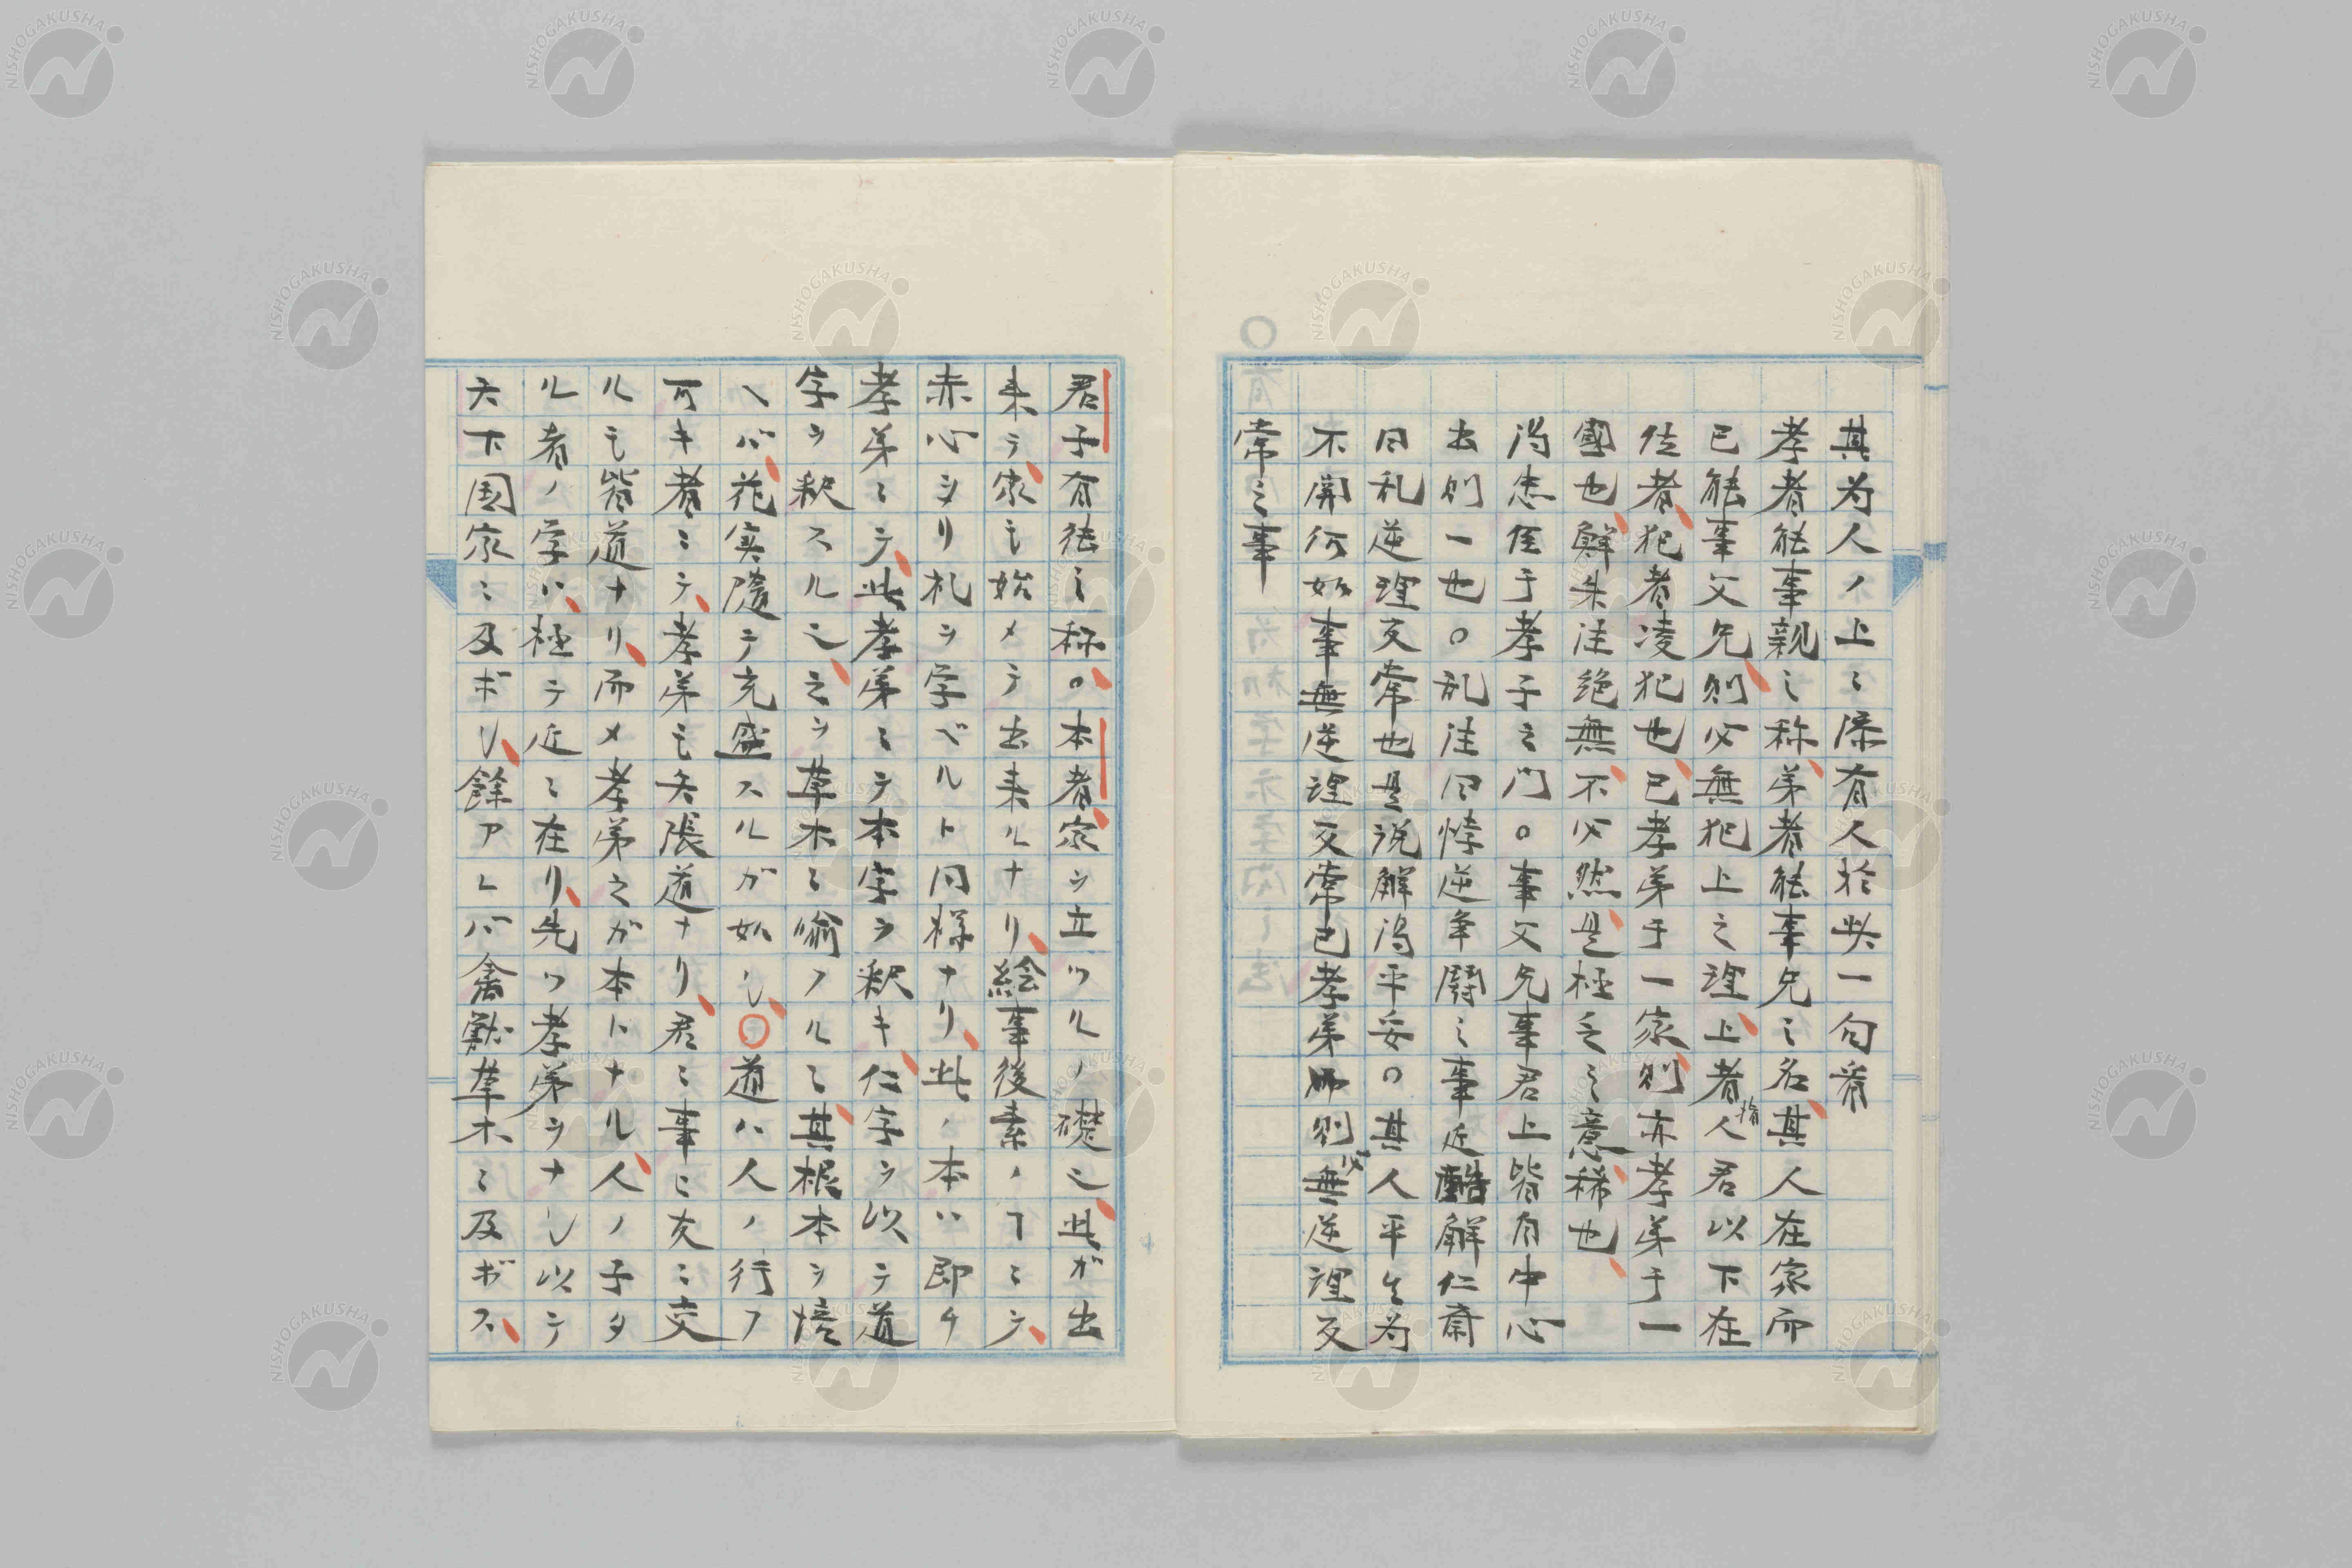 其为人ノ上ミ添有人於此一句看
孝者能事親之称弟者能事兄之名其人在家而
已能事父兄則必無犯上之理上者指人君以下在
位者犯者凌犯也已孝弟于一家則亦孝弟于一
國也鮮朱注絶無不必然是極乏之意稀也
得忠臣于孝子之門。事父兄事君上皆自中心
出則一也。乱注曰悖逆争闘之事近酷解仁斎
曰乱逆理反常也是説解得平妥。其人平生為
不関何如事無逆理反常已孝弟師則必無逆理反
常之事
君子有徳之称。本者家ヲ立ツルノ礎之此ガ出
来テ家モ始メテ出来ルナリ絵事後素ノ𠃍ニテ
赤心ヨリ礼ヲ学ベルト同様ナリ此ノ本ハ即チ
孝弟ミテ此孝弟ミテ本字ヲ釈キ仁字ヲ以テ道
字ヲ釈スル之之ヲ草木ミ喩フルミ其根本ヲ培
ヘバ花実随テ充盛スルガ如シ〇道ハ人ノ行フ
可キ者ミテ孝弟モ矢張道ナリ君ニ事ヘ友ニ交
ルモ皆道ナリ而メ孝弟之ガ本トナル人ノ子タ
ル者ノ字ハ極テ近ミ在リ先ツ孝弟ヲナシ以テ
天下国家ミ及ボシ餘アレバ禽獣草木ミ及ボス